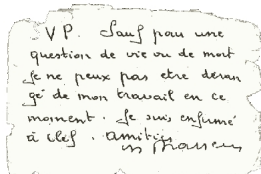 VP. Sauf pour une
question de vie ou de mort
je ne peux pas etre déran
gé de mon travail en ce
moment. Je suis enfermé
à clef. amitiés